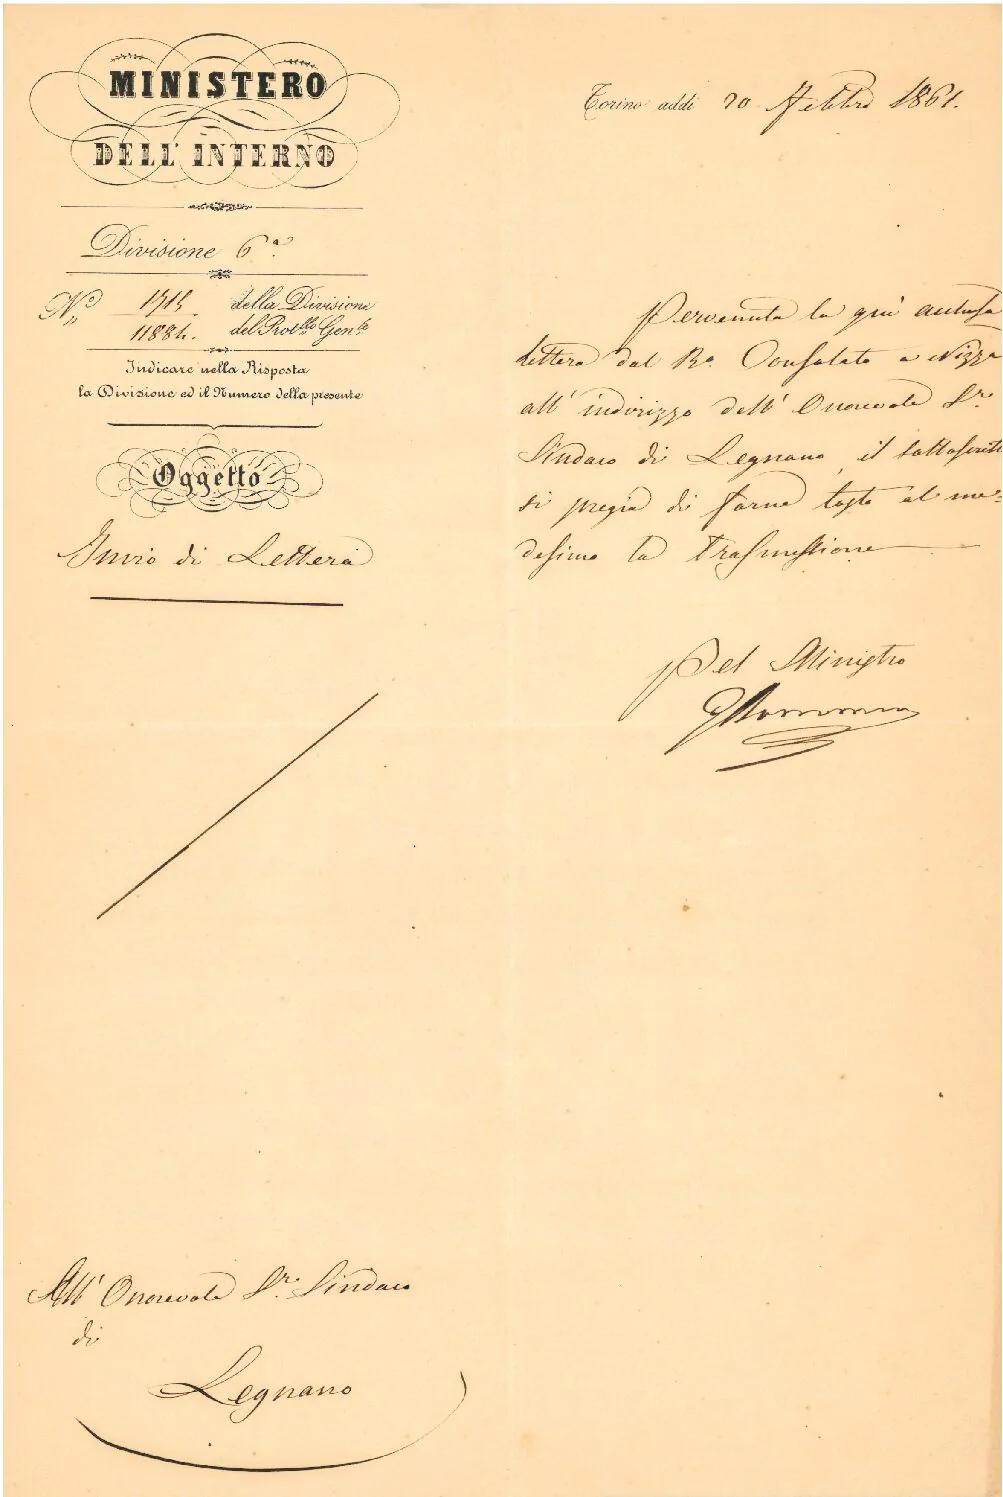 MINISTERO
DELL' INTERNO
Divisione 6ª.
N.º 1715 della Divisione
11884. del Prot.llo Gen.le
Indicare nella Risposta
la Divisione ed il Numero della presente
Oggetto
Invio di Lettera
Torino addì 20 Febbro 1861.
Pervenuta la qui annessa
lettera dal Rº. Consolato a Nizza
all' indirizzo dell' Onorevole Sr.
Sindaco di Legnano, il sottoscritto
si pregia di farne tosto al me-
desimo la trasmissione
Pel Ministro
All' Onorevole Sr. Sindaco
di
Legnano